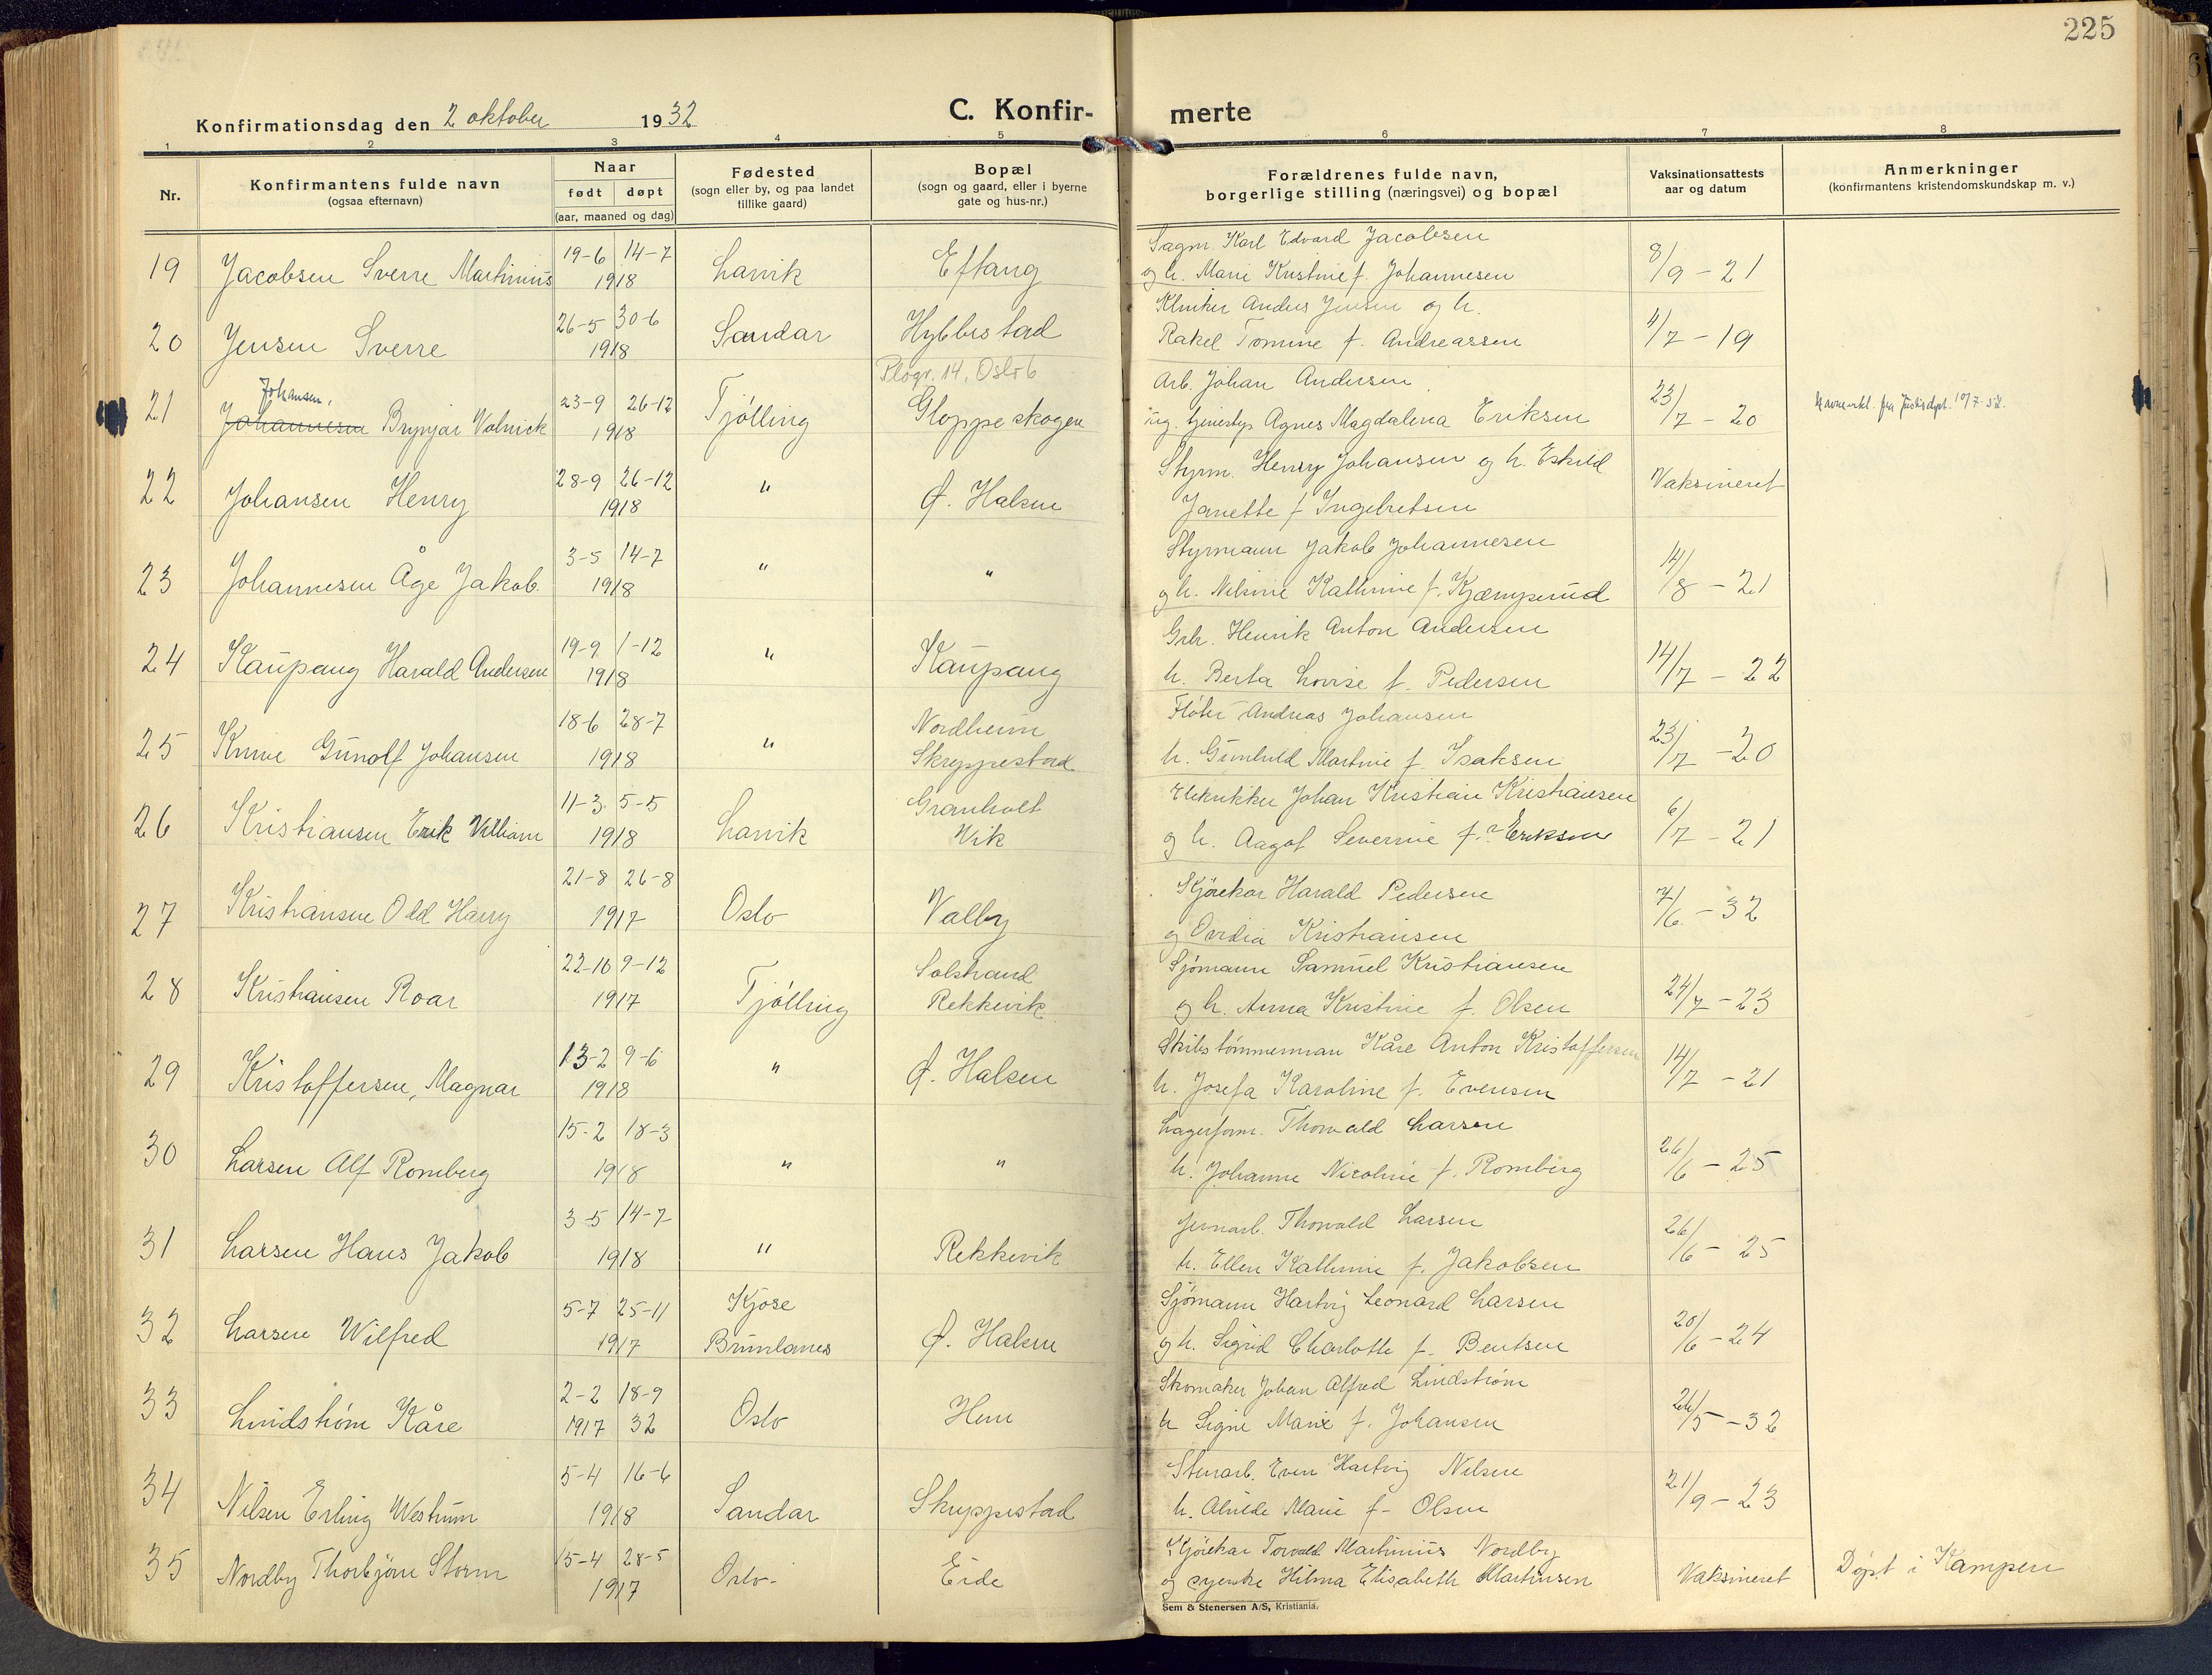 225
Konfirmationsdag den 2 oktober 1932
C. Konfir-
merte
1 2 3 4 5 6 7 8
Nr.
Konfirmantens fulde navn
(ogsaa efternavn)
Naar
født døpt
(aar, maaned og dag)
Fødested
(sogn eller by, og paa landet
tillike gaard)
Bopæl
(sogn og gaard, eller i byerne
gate og hus-nr.)
Forældrenes fulde navn,
borgerlige stilling (næringsvei) og bopæl
Vaksinationsattests
aar og datum
Anmerkninger
(konfirmantens kristendomskundskap m. v.)
19-6 14-7 Sagm. Karl Edvard Jacobsen
19 Jacobsen Sverre Martinius 1918 Larvik Eftang og h. Marie Kristine f. Johannesen 8/9 - 21
26-5 30-6 Anders Jensen og h.
20 Jensen Sverre 1918 Sandar Hybbestad Rakel Tomine f. Andreassen 4/7 - 19
Johansen, 23-9 26-12 14, Oslo Arb. Johan Andersen
21 Johannesen Brynjar 1918 Tjølling Gloppeskogen Agnes Magdalena Eriksen 23/7 - 20
28-9 26-12 Styrm. Henry Johansen og h. Eskild
22 Johansen Henry 1918 " Ø. Halsen Janette f Ingebretsen Vaksineret
3-5 14-7 Styrmann Jakob Johannesen
23 Johannesen Åge Jakob 1918 " " og h. Nilsine Kathrine f. Kjæmperud 14/8 - 21
19-9 1-12 Gbr. Henrik Anton Andersen
24 Kaupang Harald Andersen 1918 " Kaupang h. Berta Lovise f. Pedersen 14/7 - 22
18-6 28-7 Nordheim Fløter Andreas Johansen
25 Gunolf Johansen 1918 " Skreppestad h. Gunhild Martine f. Isaksen 23/7 - 20
11-3 5-5 Granholt Johan Kristian Kristiansen
26 Kristiansen Erik William 1918 Larvik Wik og h. Aagot Severine f. Eriksen 6/7 - 21
21-8 26-8 Kjørekar Harald Pedersen
27 Kristiansen Odd Harry 1917 Oslo Valby og Ovidia Kristiansen 7/6 - 32
22-10 9-12 Solstrand Sjømann Samuel Kristiansen
28 Kristiansen Roar 1917 Tjølling Rekkevik og h. Anna Kristine f. Olsen 24/7 - 23
13-2 9-6 Skibstømmerman Kåre Anton Kristoffersen
29 Kristoffersen, Magnar 1918 " Ø. Halsen h. Josefa Karoline f. Evensen 14/7 - 21
15-2 18-3 Lagerform. Thorvald Larsen
30 Larsen Alf Romberg 1918 " " h. Johanne Nicoline f. Romberg 26/6 - 25
3-5 14-7 Jernarb. Thorvald Larsen
31 Larsen Hans Jakob 1918 " Rekkevik h. Ellen Kathrine f. Jakobsen 26/6 - 25
5-7 25-11 Kjose Sjømann Hartvig Leonard Larsen
32 Larsen Wilfred 1917 Brunlanes Ø. Halsen og h. Sigrid Charlotte f. Bentsen 20/6 - 24
2-2 18-9 Skomaker Johan Alfred Lindstrøm
33 Lindstrøm Kåre 1917 32 Oslo Hem h Signe Marie f. Johansen 26/5 - 32
5-4 16-6 Stenarb. Even Hartvig Nilsen
34 Nilsen Erling Westrum 1918 Sandar Skreppestad h. Alvilde Marie f. Olsen 21/9 - 23
15-4 28-5 Kjørekar Torvald Martinius Nordby
35 Nordby Thorbjørn Storm 1917 Oslo Eide og Hilma Elisabeth Martinsen Vaksineret Døpt i Kampen
Sem & Stenersen A/S, Kristiania.